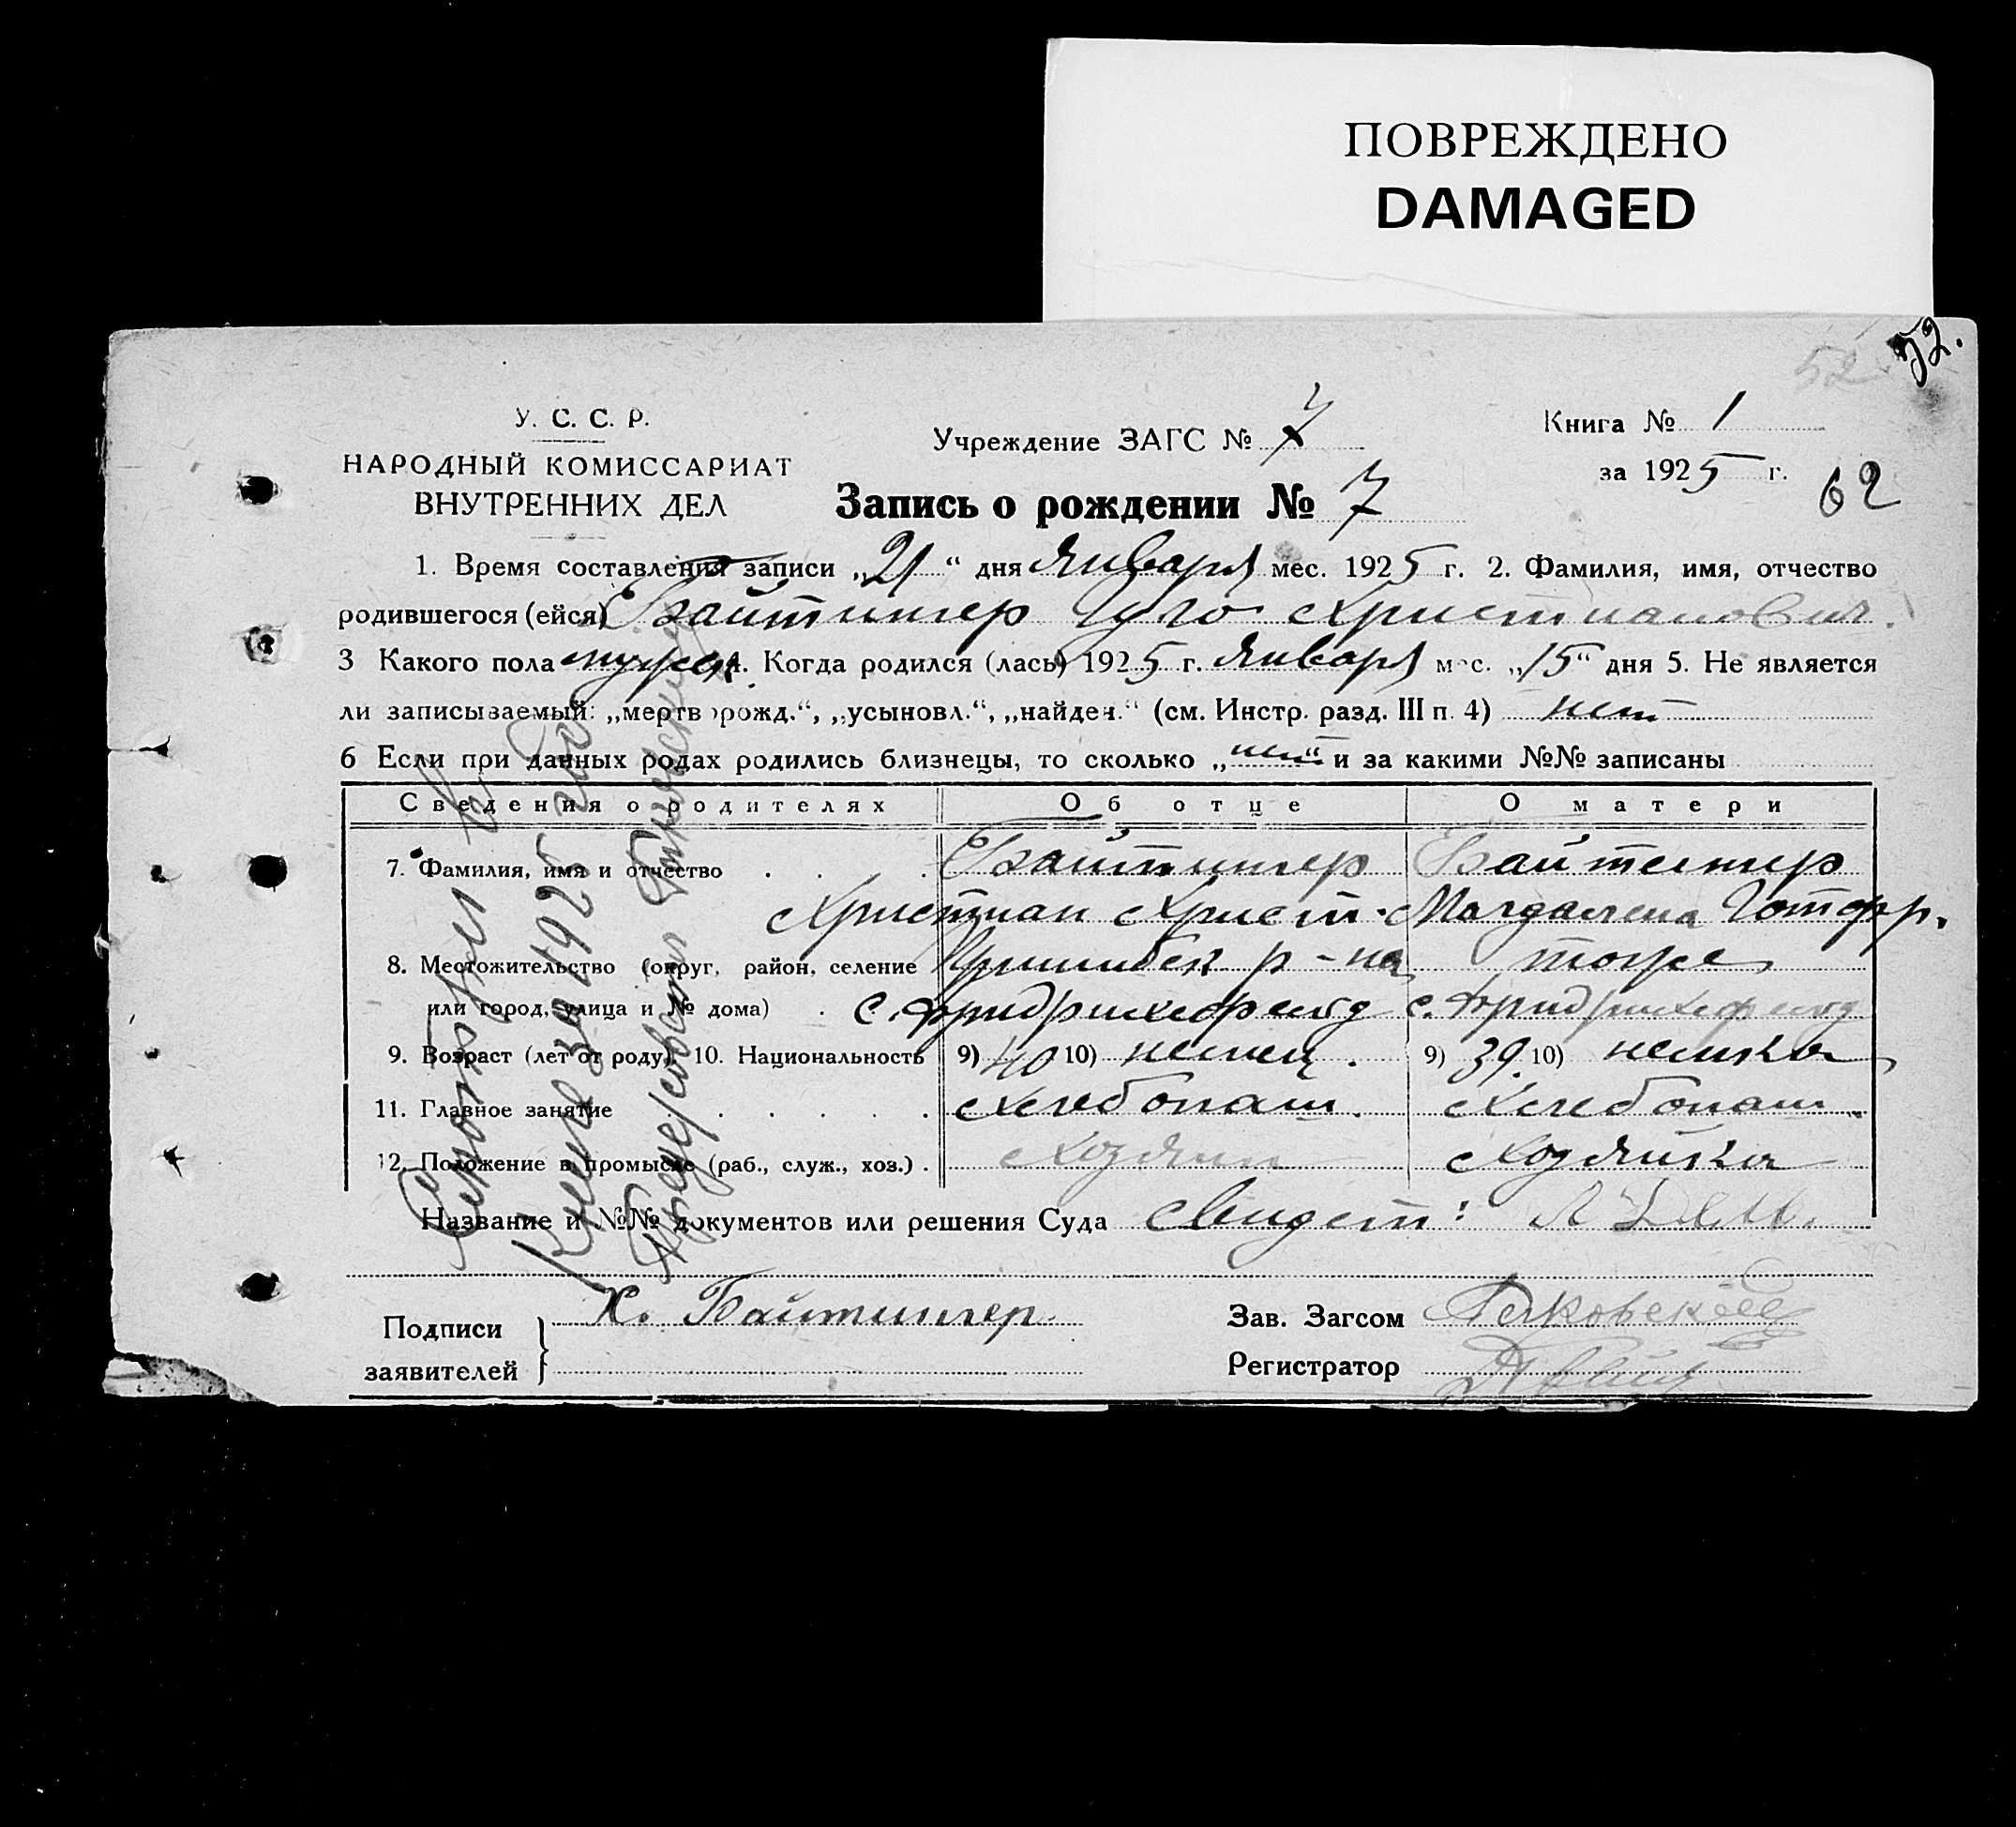 ПОВРЕЖДЕНО
DAMAGED
52
52.
У. С. С. Р.
НАРОДНЫЙ КОМИССАРИАТ
ВНУТРЕННИХ ДЕЛ
Учреждение ЗАГС №
Книга № 1
за 1925 г.
62
Запись о рождении № 7
1. Время составления записи „21“ дня Января мес. 1925 г. 2. Фамилия, имя, отчество
родившегося (ейся) Байтингер Гуго Христианович.
3 Какого пола мужск. 4. Когда родился (лась) 1925 г. Января мес. „15“ дня 5. Не является
ли записываемый: „мертворожд.“, „усыновл.“, „найден.“ (см. Инстр. разд. III п. 4) нет
6 Если при данных родах родились близнецы, то сколько „нет“ и за какими №№ записаны
Сведения о родителях Об отце О матери
7. Фамилия, имя и отчество Байтингер Байтингер
Христиан Христ. Магдалена Готфр.
8. Местожительство (округ, район, селение Пришибск р-на тоже
или город, улица и № дома) с. Фридрихсфельд с. Фридрихсфельд
9. Возраст (лет от роду) 10. Национальность 9) 40 10) немец. 9) 39. 10) немка
11. Главное занятие Хлебопаш. Хлебопаш.
12. Положение в промысле (раб., служ., хоз.) Хозяин Хозяйка
Название и №№ документов или решения Суда Свидет:
Подписи заявителей Х. Байтингер
Зав. Загсом
Регистратор
книге за 1925 год